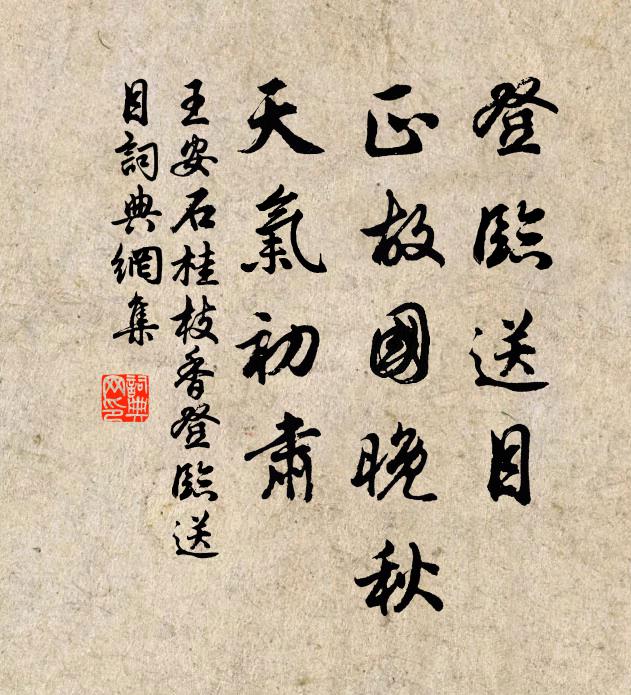 登臨送目
正故國晚秋
天氣初肅
王安石桂枝香登臨送
目詞典網集
詞典网印